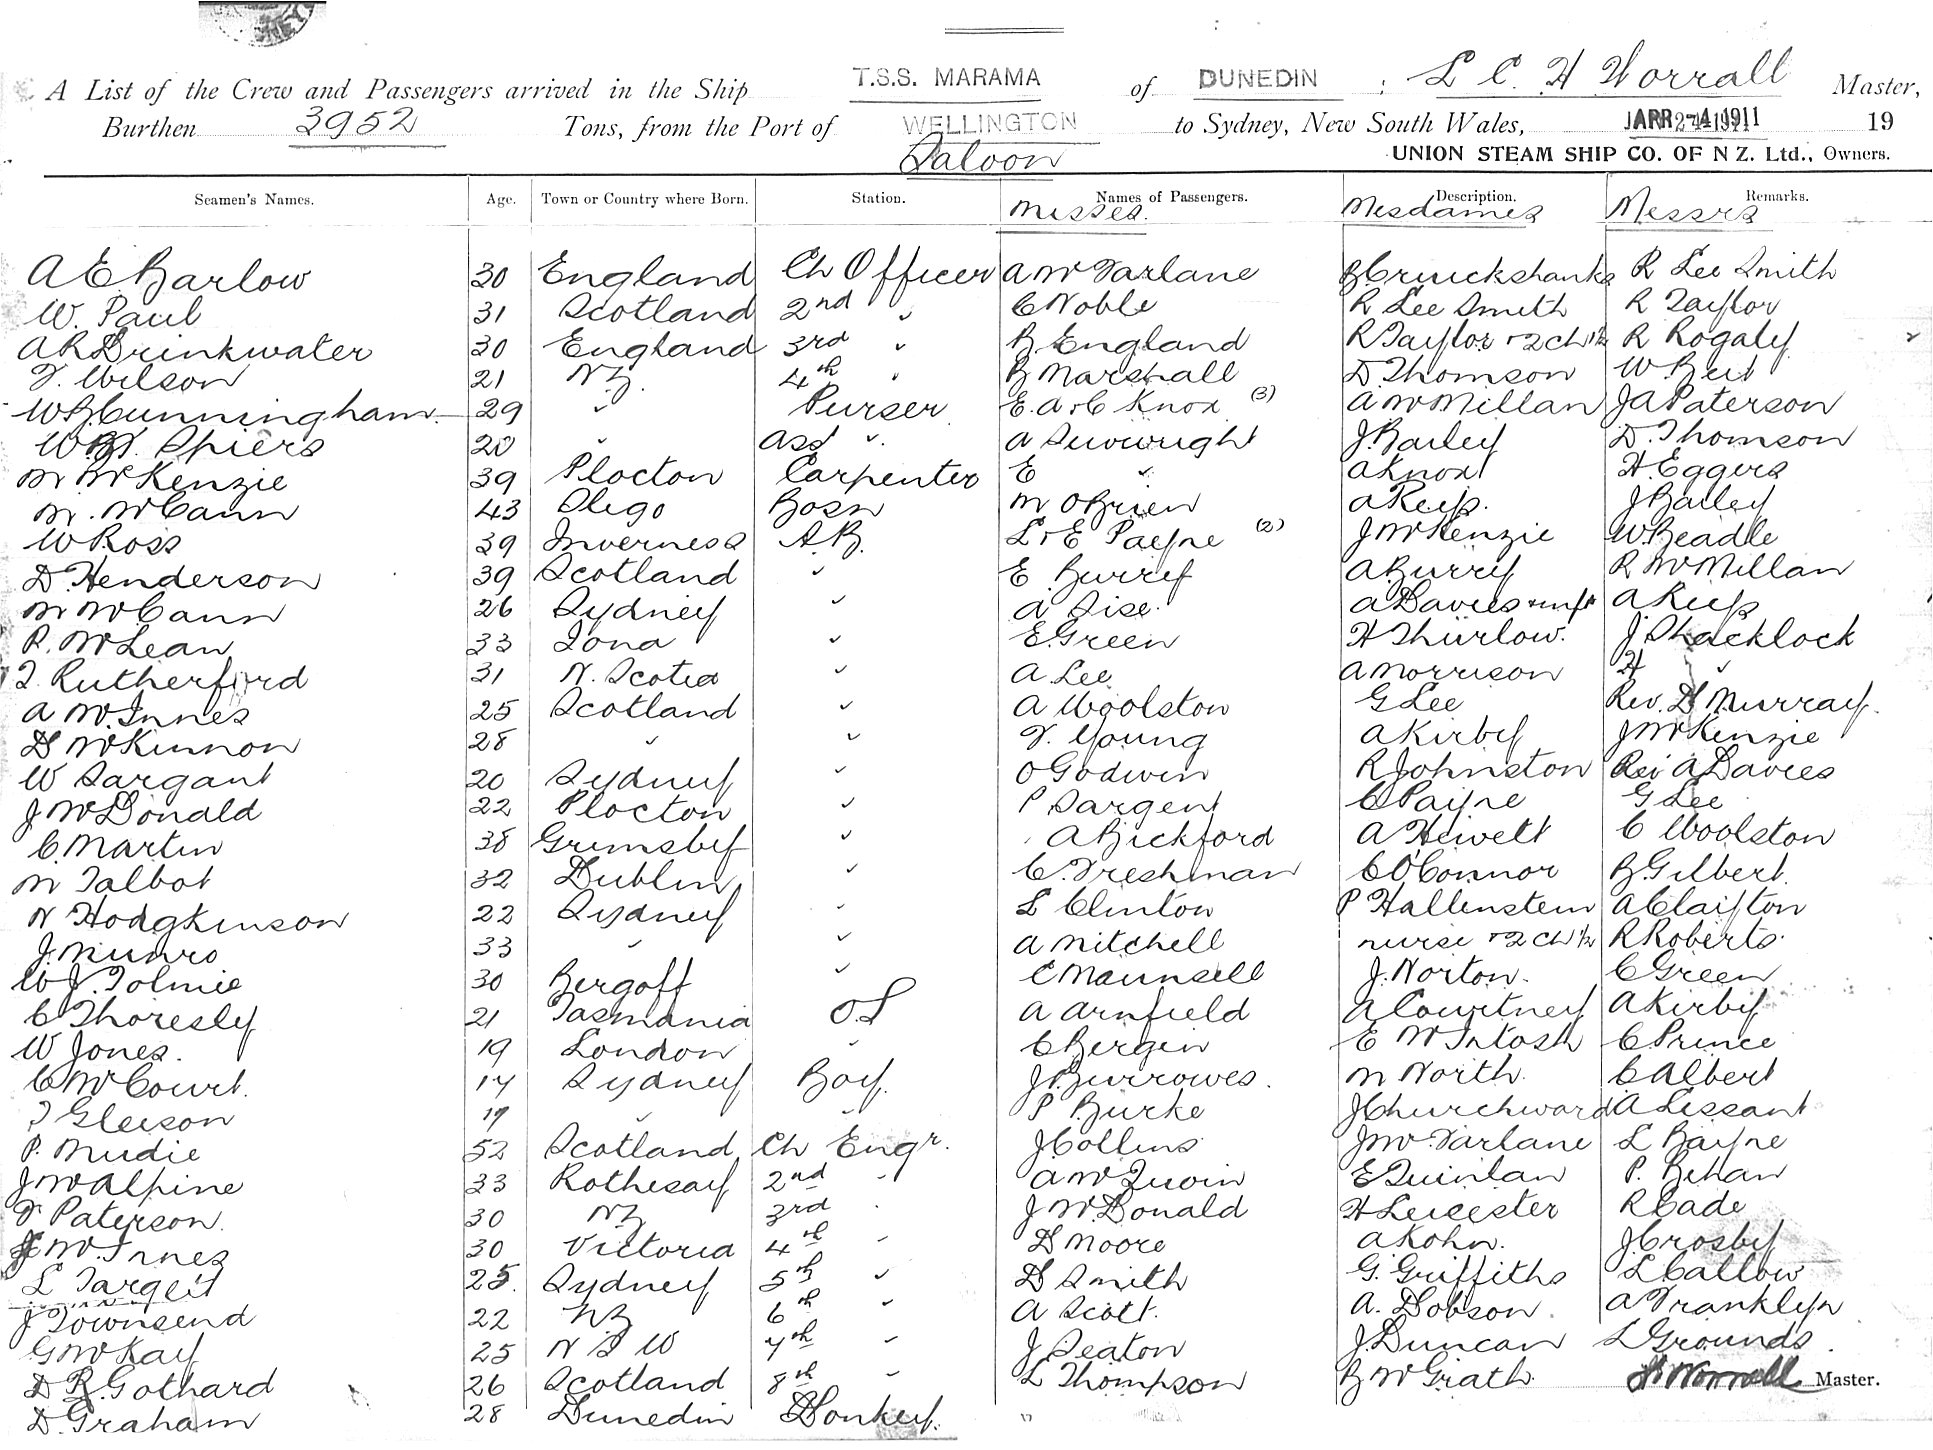 A List of the Crew and Passengers arrived in the Ship T.S.S. MARAMA of DUNEDIN ; L C H Worrall Master,
Burthen 3952 Tons, from the Port of WELLINGTON to Sydney, New South Wales, APR 1911 19
Saloon UNION STEAM SHIP CO. OF N Z. Ltd., Owners.
Seamen's Names. Age. Town or Country where Born. Station. Names of Passengers. Description. Remarks.
Misses. Mesdames Messrs
A E Barlow 30 England Ch Officer A McFarlane B Cruickshanks R Lee Smith
W. Paul 31 Scotland 2nd " C Noble R Lee Smith R Taylor
A R Drinkwater 30 England 3rd " B England R Taylor + 2 Ch 1/2 R Rogaly
F. Wilson 21 NZ. 4th " B Marshall D. Thomson W
W B Cunningham 29 " Purser E. A + C Knox (3) A McMillan J A Paterson
W. Spiers 20 " Asst " A J. Bailey D. Thomson
M McKenzie 39 Plocton Carpenter E " A Knox H Eggers
M. McCann 43 Sligo Bosn M OBrien A J Bailey
W Ross 39 Inverness A.B. L + E Payne (2) J McKenzie W. Beadle
D. Henderson 39 Scotland " E Burry A Burry R McMillan
M McCann 26 Sydney " A Sise. A Davies + inft A
R. McLean 33 Iona " E. Green H Thurlow. J. Shacklock
T. Rutherford 31 N. Scotia " A Lee A Morrison H "
A McInnes 25 Scotland " A Woolston G Lee Rev. D Murray.
D McKinnon 28 " " F. Young A Kirby J McKenzie
W Sargant 20 Sydney " O Godwin R Johnston Rev A Davies
J McDonald 22 Plocton " P Sargent C Payne G Lee
C. Martin 38 Grimsby " A Bickford A Hewett C Woolston
M Talbot 32 Dublin " C. Freshman C O'Connor B. Gilbert.
N Hodgkinson 22 Sydney " L Clinton P Hallenstein A Claifton
J. Munro 33 " " A Mitchell nurse + 2 Ch 1/2 R Roberts.
W J. Tolmie 30 Bergoff " C Maunsell J. Norton. C Green
C Thoresby 21 Tasmania OS A Arnfield A Courtney A Kirby
W Jones. 19 London " C Bergin E McIntosh C Prince
C McCourt. 17 Sydney Boy. J. Burrowes. M North. C Albert
T Gleeson 17 " " P Burke J Churchward A Lissant
P. Mudie 52 Scotland Ch Engr. J Collins J McFarlane L Bayne
J McAlpine 33 Rothesay 2nd " A McQuoin E Quinlan P. Behan
F Paterson. 30 NZ 3rd " J McDonald H Leicester R Cade
McInnes 30 Victoria 4th " D Moore A Kohn. J. Crosby
L Target 25. Sydney 5th " D Smith G. Griffiths L Callow
J Townsend 22 NZ 6th " A Scott. A. Dobson. A Franklyn
G McKay 25 N S W 7th " J Seaton J. Duncan L Grounds.
D R. Gothard 26 Scotland 8th " L Thompson B McGrath. Worrall Master.
D. Graham 28 Dunedin Donkey.